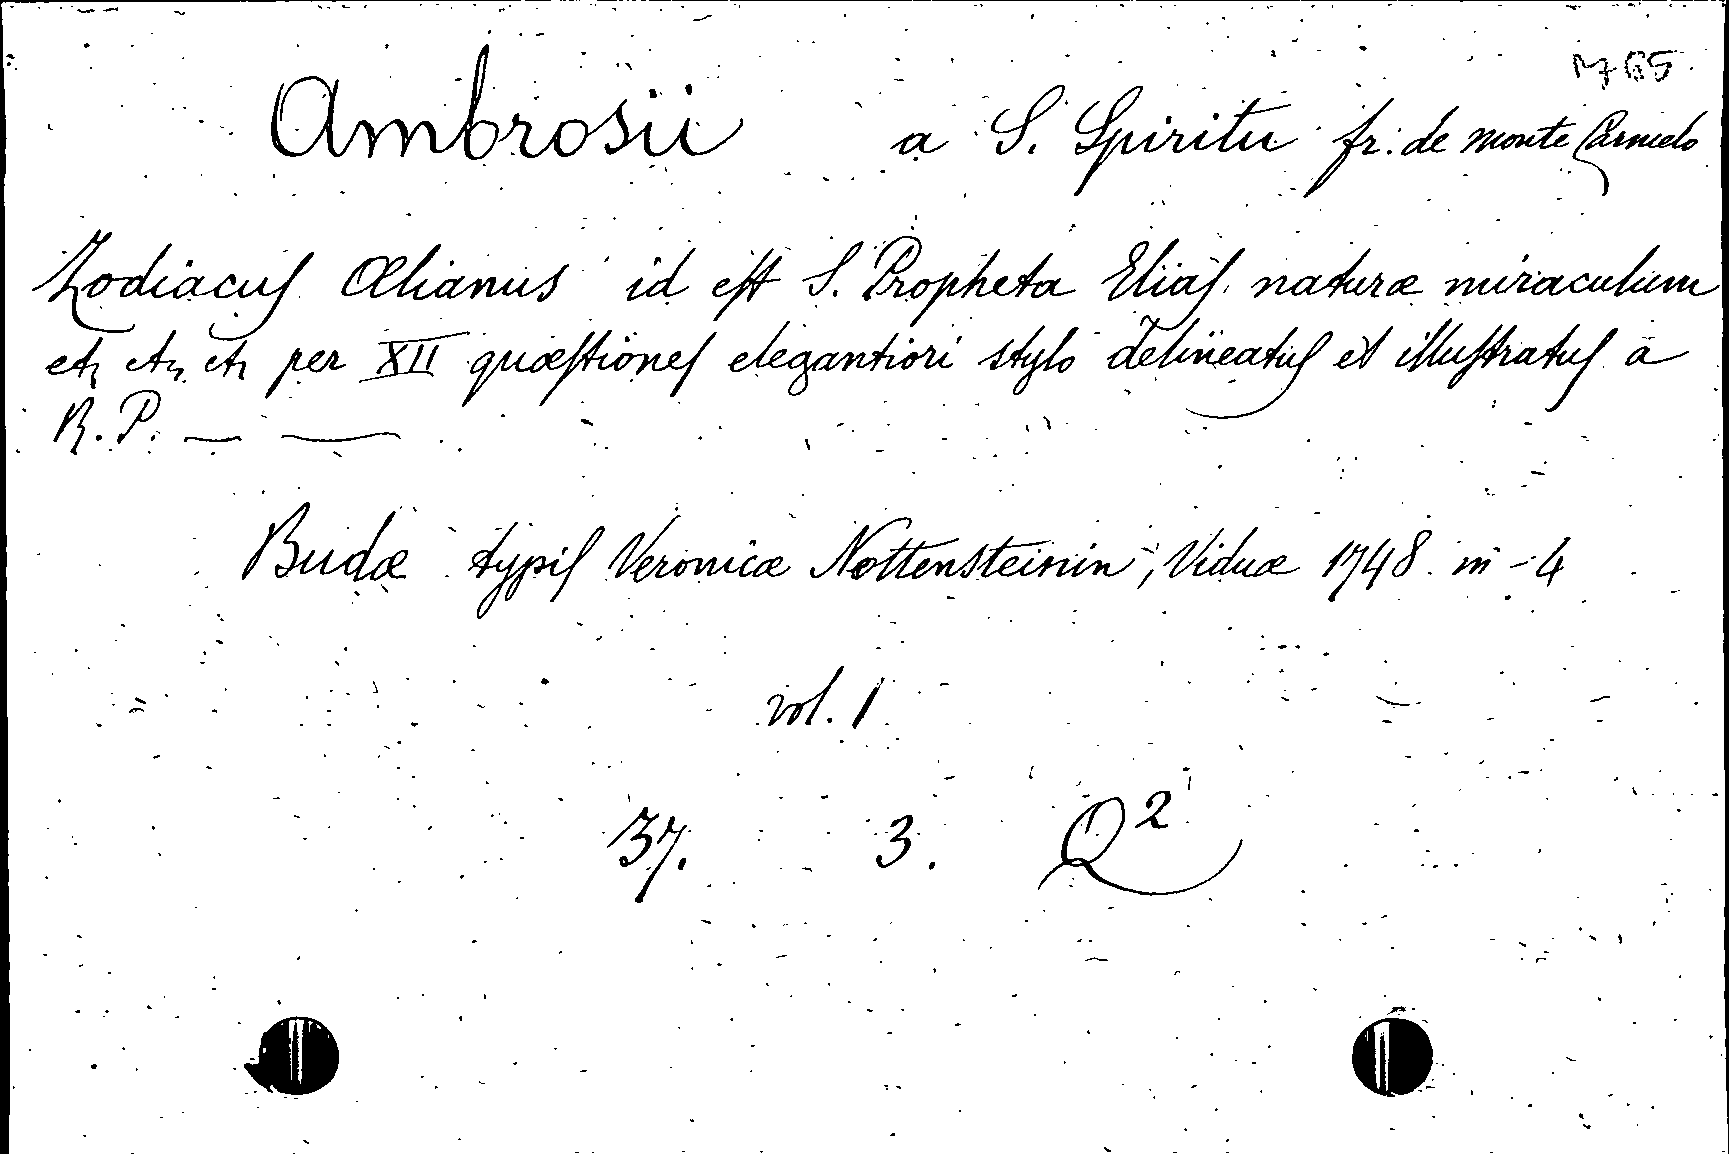 1765
Ambrosii a S. Spiritu fr. de monte Carmelo
Zodiacus Œlianus id est S. Propheta Elias naturæ miraculum
etc etc etc per XII quæstiones elegantiori stylo delineatus et illustratus a
R. P. — —
Budæ typis Veronicæ Nottensteinin, Viduæ 1748. in -4
vol. 1
37. 3. Q²